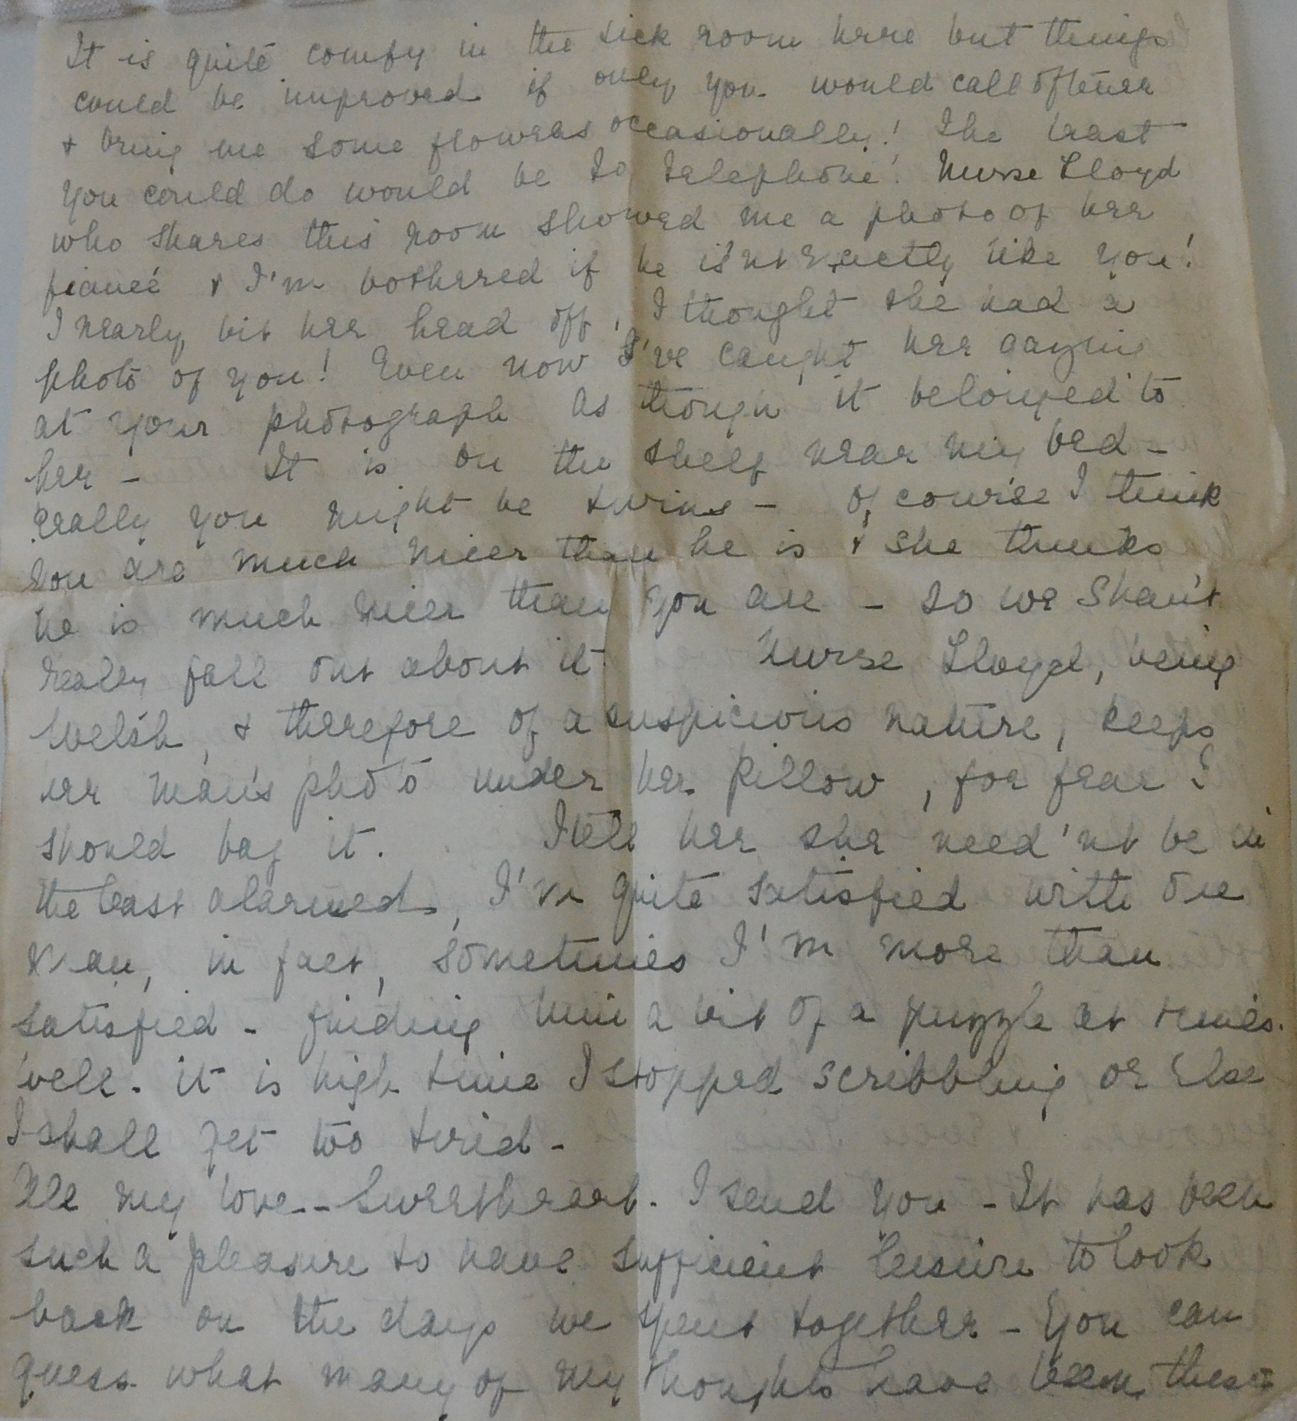 It is quite comfy in the sick room here but things
could be improved if only you would call oftener
+ bring me some flowers occasionally! The least
you could do would be to telephone! Nurse Lloyd
who shares this room showed me a photo of her
fiancé + I'm bothered if he is'nt exactly like you!
I nearly bit her head off, I thought she had a
photo of you! Even now I've caught her gazing
at your photograph as though it belonged to
her - It is on the shelf near my bed -
really you might be twins - of course I think
you are much nicer than he is + she thinks
he is much nicer than you are - so we shan't
really fall out about it. Nurse Lloyd, being
Welsh, + therefore of a suspicious nature, keeps
her man's photo under her pillow, for fear I
should bag it. I tell her she need'nt be in
the least alarmed, I'm quite satisfied with one
man, in fact, sometimes I'm more than
satisfied - finding him a bit of a puzzle at times.
Well - it is high time I stopped scribbling or else
I shall get too tired -
All my love -- Sweetheart - I send you - It has been
such a pleasure to have sufficient leisure to look
back on the days we spent together - You can
guess what many of my thoughts have been these